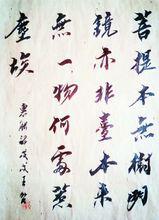 菩提本無樹明
鏡亦非臺本来
無一物何處惹
塵埃
惠能詩